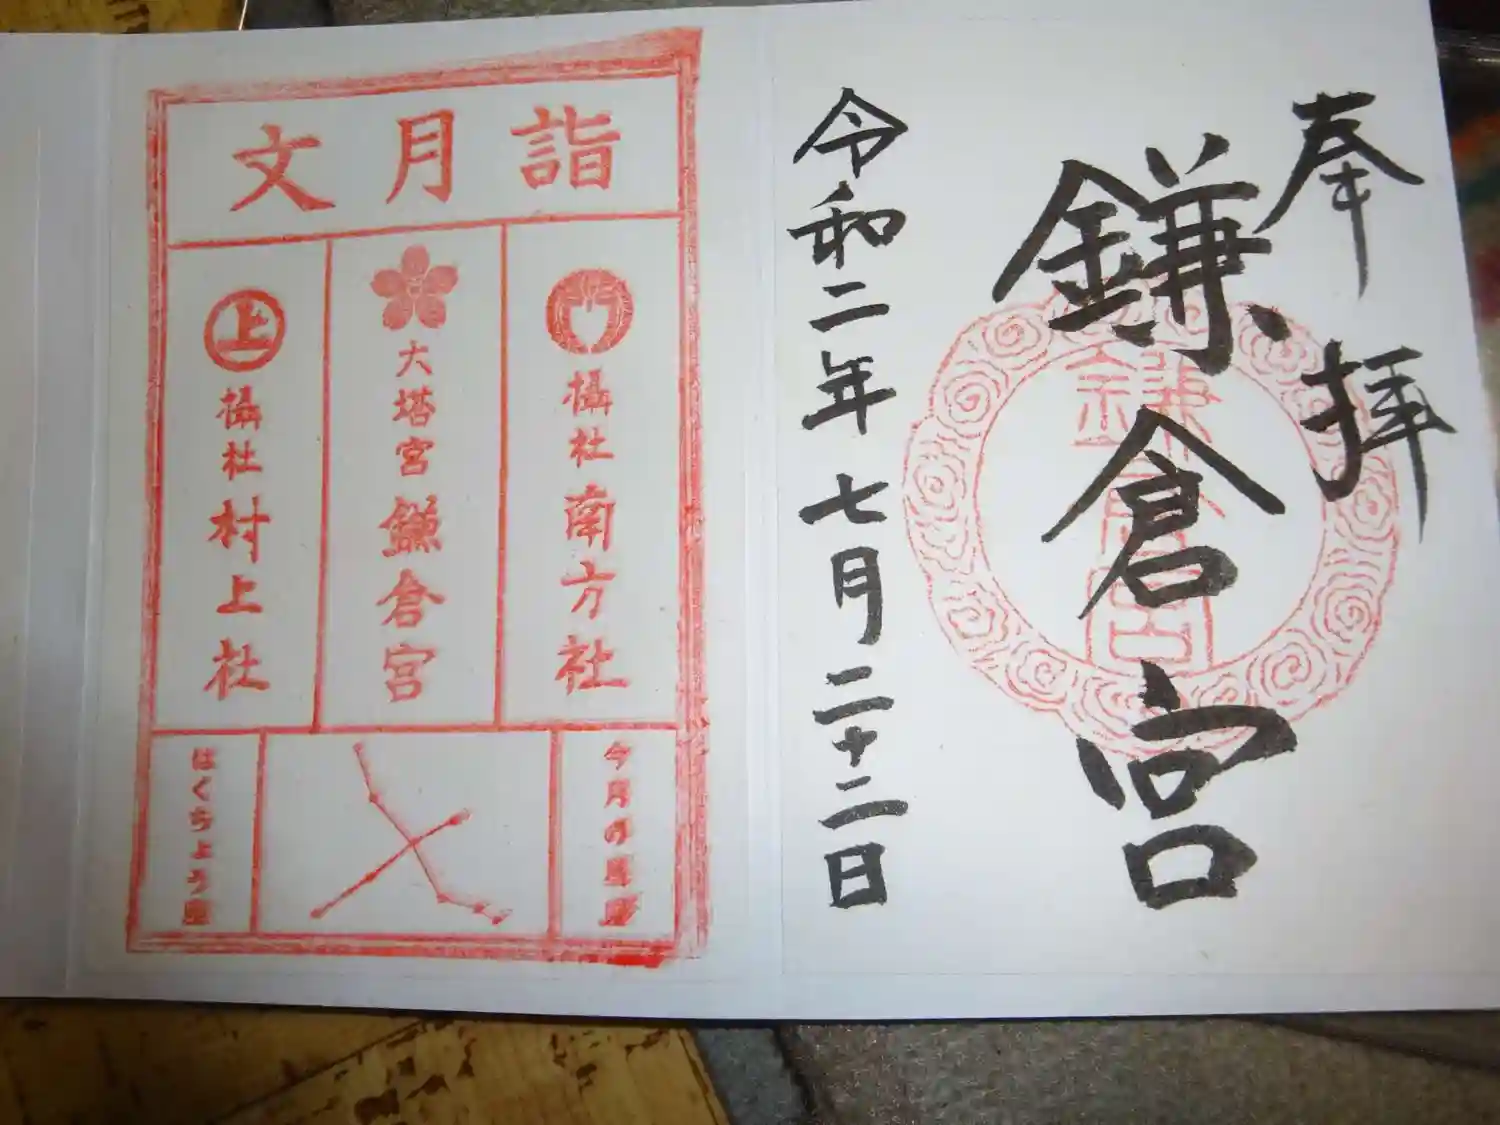 奉拝
鎌倉宮
鎌倉宮
令和二年七月二十二日
文月詣
攝社南方社
大塔宮鎌倉宮
上
攝社村上社
今月の星座
はくちょう座